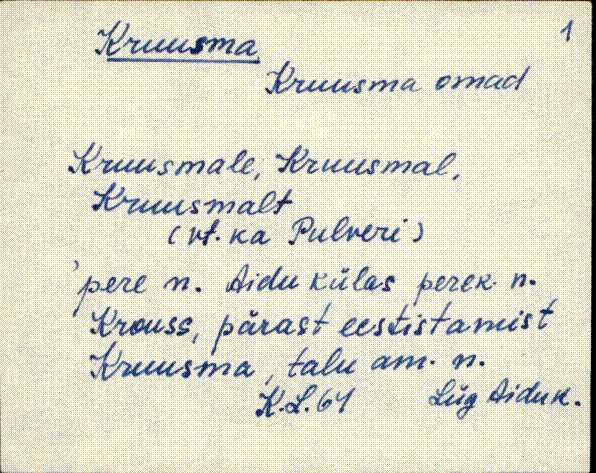 1
Kruusma
Kruusma omad
Kruusmale, Kruusmal,
Kruusmalt
(vt. ka Pulveri)
'pere n. Aidu külas perek. n.
Krouss, pärast eestistamist
Kruusma, talu am. n.
K.L. 61 Lüg Aidu k.